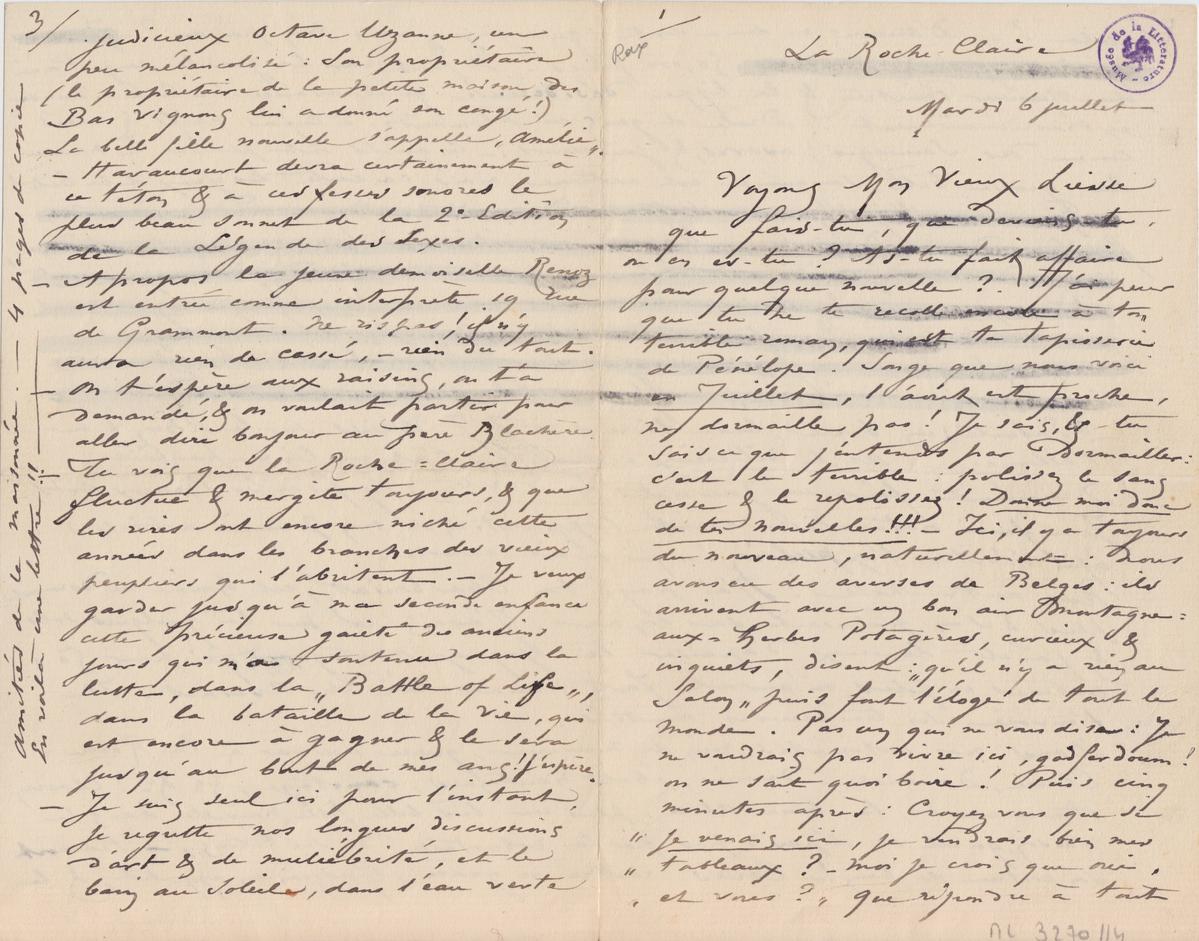 1/
Rox
La Roche-Claire
Musée de la Littérature
Mardi 6 juillet
Voyons Mon Vieux Liesse
que fais-tu, que deviens-tu,
où en es-tu ? As-tu fait affaire
pour quelque nouvelle ? J'ai peur
que tu ne te recolle encore à ton
terrible roman, qui est ta tapisserie
de Pénélope. Songe que nous voici
en Juillet, l'août est proche,
ne dormaille pas ! Je sais, & tu
sais ce que j'entends par Dormailler :
c'est le terrible : polissez le sans
cesse & le repolissez ! Donne moi donc
de tes nouvelles !!! – Ici, il y a toujours
du nouveau, naturellement : nous
avons eu des averses de Belges : ils
arrivent avec un bon air Montagne=
aux-Herbes Potagères, curieux &
inquiets, disent : „qu'il n'y a rien au
Salon„ puis font l'éloge de tout le
monde. Pas un qui ne vous dise : Je
ne voudrais pas vivre ici, godferdoum !
on ne sait quoi boire ! Puis cinq
minutes après : Croyez vous que si
„ je venais ici, je vendrais bien mes
„ tableaux ? – moi je crois que oui,
„ et vous ? „ Que répondre à tout
ML 3270/14
3/
judicieux Octave Uzanne, un
peu mélancolisé : Son propriétaire
(le propriétaire de la petite maison des
Bas Vignons lui a donné son congé !)
La belle fille nouvelle s'appelle „Amélie„.
– Haraucourt devra certainement à
ce téton & à ces fesses sonores le
plus beau sonnet de la 2e Edition
de la Légende des Sexes.
– A propos la jeune demoiselle Renoz
est entrée comme interprète 19 Rue
de Grammont. Ne ris pas ! il n'y
aura rien de cassé, – rien du tout.
– On t'espère aux raisins, on t'a
demandé, & on voulait partir pour
aller dire bonjour au père Blachère.
Tu vois que la Roche=Claire
fluctue & mergite toujours, & que
les rires ont encore niché cette
année dans les branches des vieux
peupliers qui l'abritent. – Je veux
garder jusqu'à ma seconde enfance
cette précieuse gaieté des anciens
jours qui m'a soutenu dans la
lutte, dans la „Battle of Life„,
dans la bataille de la vie, qui
est encore à gagner & le sera
jusqu'au bout de mes ans ! j'espère.
– Je suis seul ici pour l'instant,
je regrette nos longues discussions
d'art & de muliebrité, et le
bain au Soleil, dans l'eau verte
Amitiés de la maisonnée. – 4 pages de copie
En voilà une lettre !!